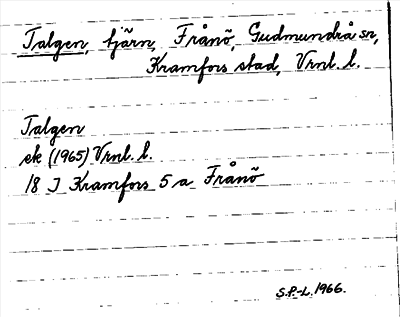 Talgen, tjärn, Frånö, Gudmundrå sn,
Kramfors stad, Vrnl. l.
Talgen
ek (1965) Vrnl. l.
18 J Kramfors 5 a Frånö
S.P.-L. 1966.